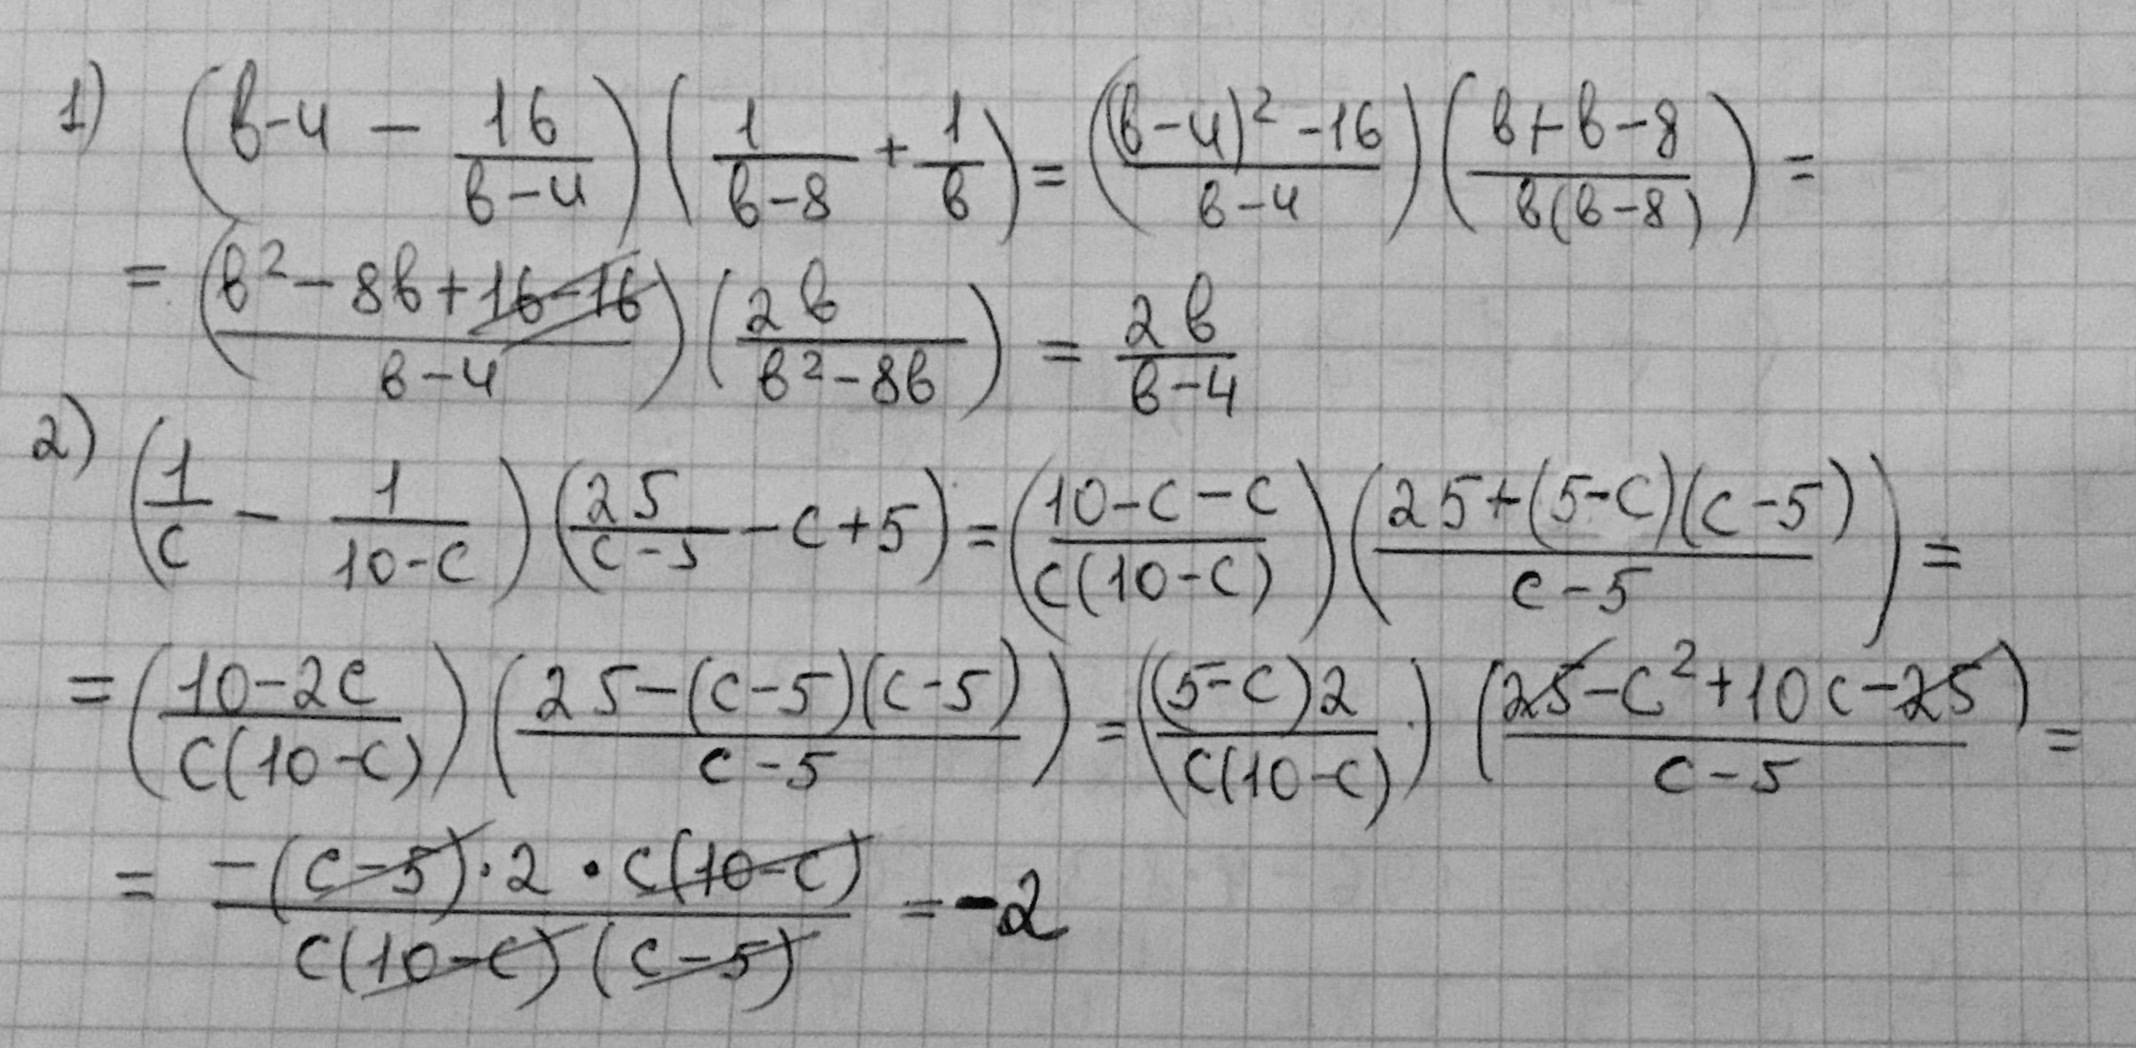 1) (в-4 - 16/(в-4)) (1/(в-8) + 1/в) = (((в-4)² -16)/(в-4)) ((в+в-8)/(в(в-8))) =
= ((в² - 8в + 16 - 16)/(в-4)) (2в/(в² - 8в)) = 2в/(в-4)
2) (1/c - 1/(10-c)) (25/(c-5) - c + 5) = ((10-c-c)/(c(10-c))) ((25+(5-c)(c-5))/(c-5)) =
= ((10-2c)/(c(10-c))) ((25-(c-5)(c-5))/(c-5)) = (((5-c)2)/(c(10-c))) ((25-c²+10c-25)/(c-5)) =
= (-(c-5)·2·c(10-c))/(c(10-c)(c-5)) = -2